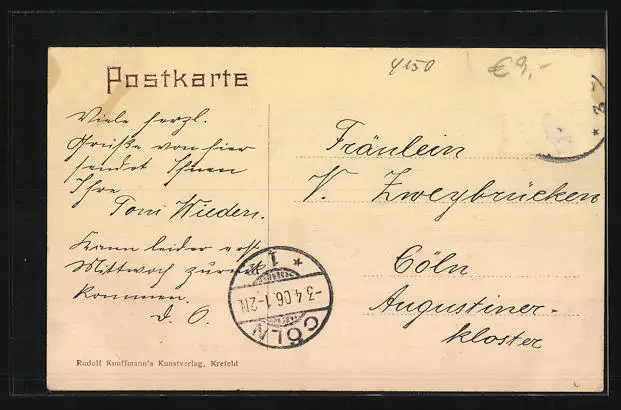 Postkarte
4150
€9,-
Viele herzl.
Grüße von hier
sendet Ihnen
Ihre
Toni Wieden.
Kann leider erst
Mittwoch zurück
kommen.
d. O.
Fräulein
V. Zweybrücken
Cöln
Augustiner-
kloster
CÖLN
-3.4.06.1-2N.
* 1
Rudolf Kauffmann's Kunstverlag, Krefeld